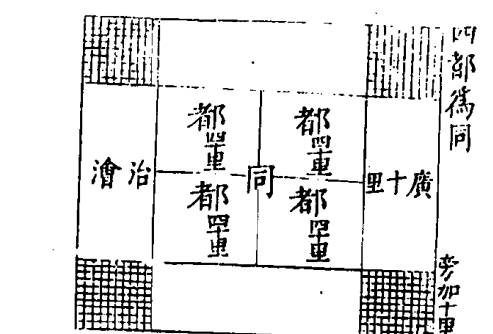 四都為同
旁加十里
廣十里
都四十里
都四十里
同
都四十里
都四十里
治澮